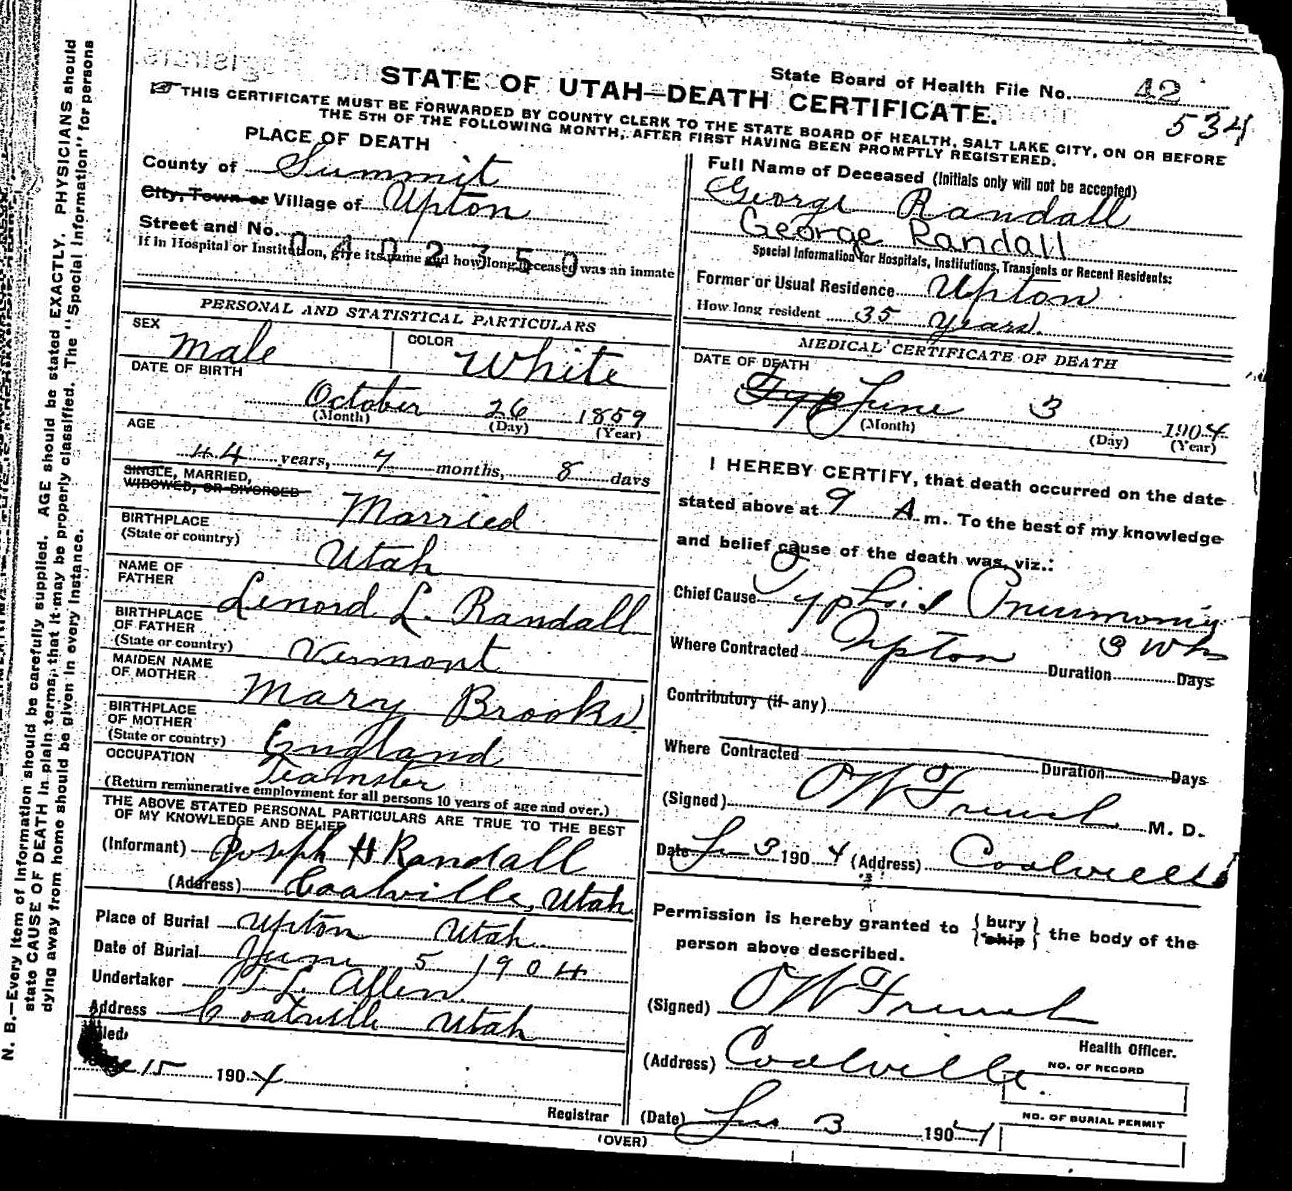 N. B.—Every item of information should be carefully supplied. AGE should be stated EXACTLY. PHYSICIANS should
state CAUSE OF DEATH in plain terms, that it may be properly classified. The "Special Information" for persons
dying away from home should be given in every instance.
State Board of Health File No. 42
534
STATE OF UTAH—DEATH CERTIFICATE.
THIS CERTIFICATE MUST BE FORWARDED BY COUNTY CLERK TO THE STATE BOARD OF HEALTH, SALT LAKE CITY, ON OR BEFORE
THE 5TH OF THE FOLLOWING MONTH, AFTER FIRST HAVING BEEN PROMPTLY REGISTERED.
PLACE OF DEATH
County of Summit
City, Town or Village of Upton
Street and No.
0402350
If in Hospital or Institution, give its name and how long deceased was an inmate
PERSONAL AND STATISTICAL PARTICULARS
SEX Male
COLOR White
DATE OF BIRTH
October 26 1859
(Month) (Day) (Year)
AGE
44 years, 7 months, 8 days
SINGLE, MARRIED,
WIDOWED, OR DIVORCED
Married
BIRTHPLACE
(State or country) Utah
NAME OF
FATHER Lenord L. Randall
BIRTHPLACE
OF FATHER
(State or country) Vermont
MAIDEN NAME
OF MOTHER Mary Brooks
BIRTHPLACE
OF MOTHER
(State or country) England
OCCUPATION Teamster
(Return remunerative employment for all persons 10 years of age and over.)
THE ABOVE STATED PERSONAL PARTICULARS ARE TRUE TO THE BEST
OF MY KNOWLEDGE AND BELIEF
(Informant) Joseph H Randall
(Address) Coalville, Utah
Place of Burial Upton Utah
Date of Burial June 5 1904
Undertaker T. L. Allen
Address Coalville Utah
Filed
15 1904
Registrar
Full Name of Deceased (Initials only will not be accepted)
George Randall
George Randall
Special Information for Hospitals, Institutions, Transients or Recent Residents:
Former or Usual Residence Upton
How long resident 35 years
MEDICAL CERTIFICATE OF DEATH
DATE OF DEATH
June 3 1904
(Month) (Day) (Year)
I HEREBY CERTIFY, that death occurred on the date
stated above at 9 A m. To the best of my knowledge
and belief cause of the death was, viz.:
Chief Cause Typhoid Pneumonia
Where Contracted Upton Duration 3 Wks Days
Contributory (if any)
Where Contracted Duration Days
(Signed) M. D.
Date 3 1904 (Address) Coalville
Permission is hereby granted to { bury ship } the body of the
person above described.
(Signed)
Health Officer.
(Address) Coalville
NO. OF RECORD
NO. OF BURIAL PERMIT
(Date) 3 1904
(OVER)